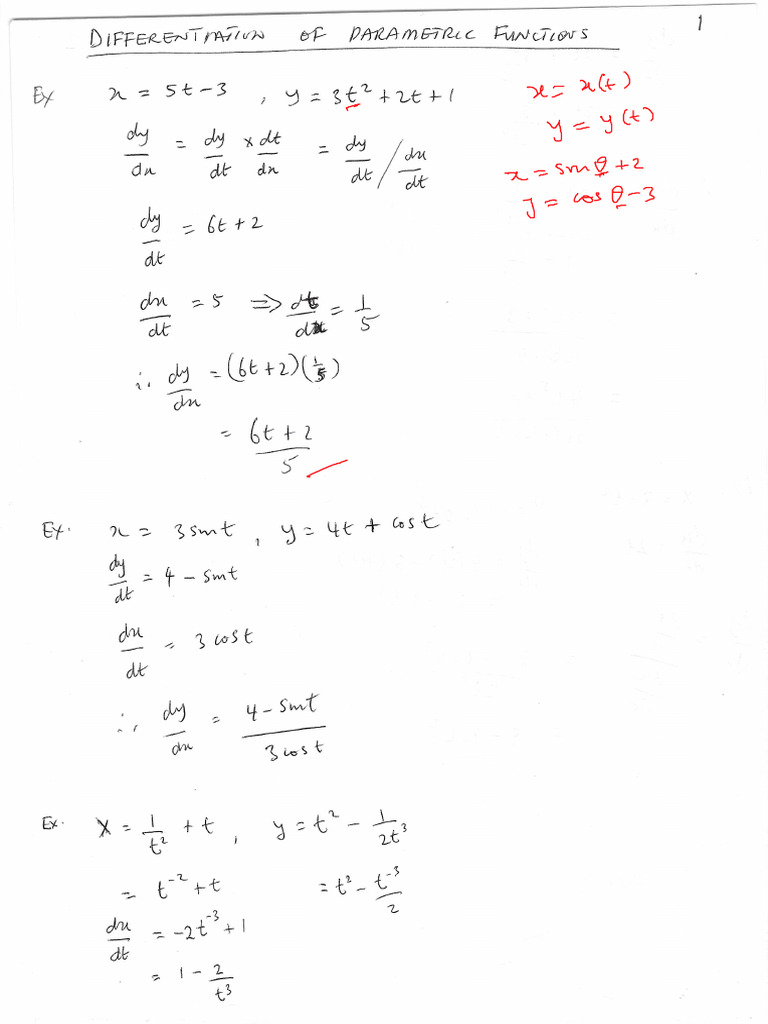 DIFFERENTIATION OF PARAMETRIC FUNCTIONS
1
Ex x = 5t - 3 , y = 3t² + 2t + 1
x = x(t)
y = y(t)
x = sin θ + 2
y = cos θ - 3
dy/dx = dy/dt × dt/dx = dy/dt / dx/dt
dy/dt = 6t + 2
dx/dt = 5 ⇒ dt/dx = 1/5
∴ dy/dx = (6t + 2)(1/5)
= 6t + 2 / 5
Ex. x = 3 sin t , y = 4t + cos t
dy/dt = 4 - sin t
dx/dt = 3 cos t
∴ dy/dx = 4 - sin t / 3 cos t
Ex. x = 1/t² + t , y = t² - 1/2t³
= t⁻² + t = t² - t⁻³/2
dx/dt = -2t⁻³ + 1
= 1 - 2/t³